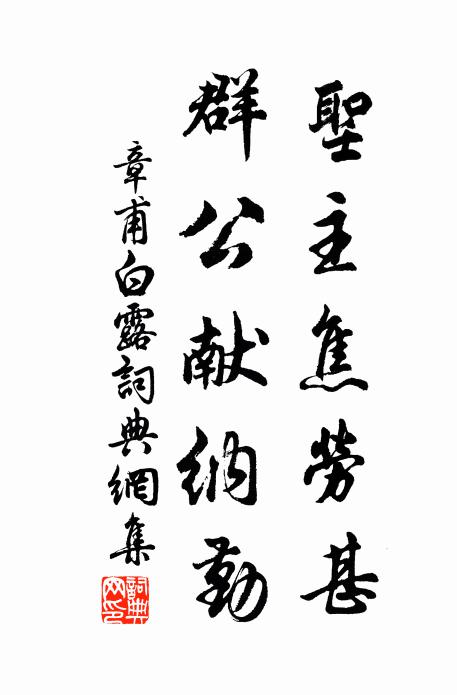 聖主焦勞甚
群公献納勤
章甫白露詞典網集
詞典